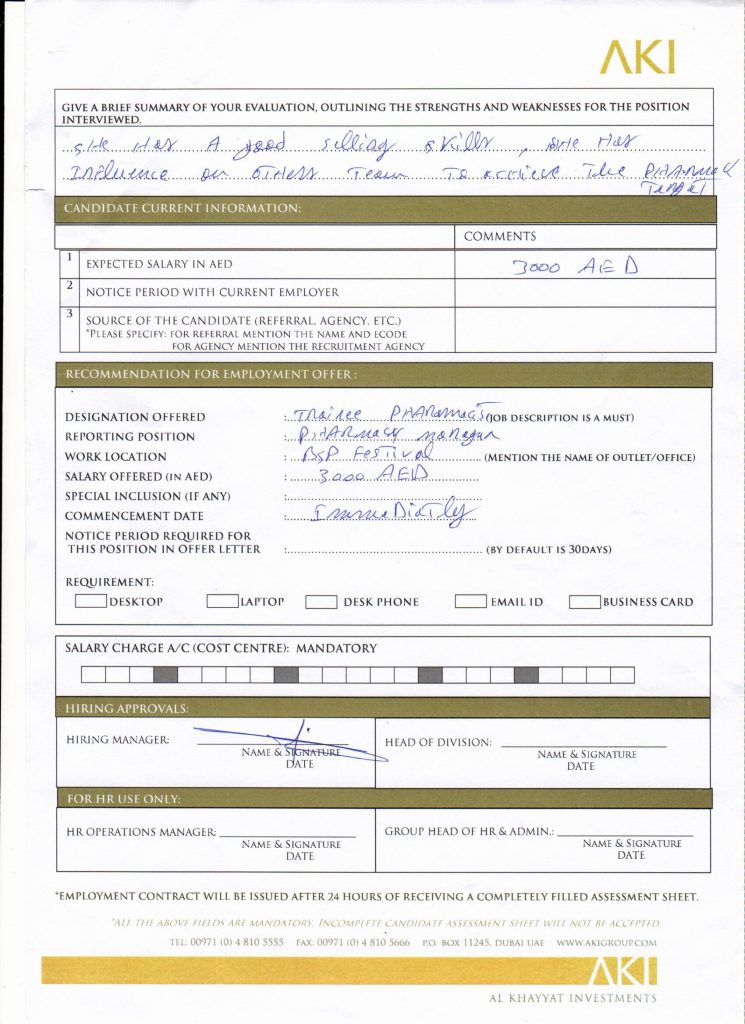 AKI
GIVE A BRIEF SUMMARY OF YOUR EVALUATION, OUTLINING THE STRENGTHS AND WEAKNESSES FOR THE POSITION
INTERVIEWED.
SHE HAS A good selling skills, SHE HAS
Influence on OTHERS Team TO achieve The PHARMACY
Target
CANDIDATE CURRENT INFORMATION:
COMMENTS
1 EXPECTED SALARY IN AED 3000 AED
2 NOTICE PERIOD WITH CURRENT EMPLOYER
3 SOURCE OF THE CANDIDATE (REFERRAL, AGENCY, ETC.)
*PLEASE SPECIFY: FOR REFERRAL MENTION THE NAME AND ECODE
FOR AGENCY MENTION THE RECRUITMENT AGENCY
RECOMMENDATION FOR EMPLOYMENT OFFER :
DESIGNATION OFFERED : Trainee PHARmacist (JOB DESCRIPTION IS A MUST)
REPORTING POSITION : PHARmacy manager
WORK LOCATION : BSP Festival (MENTION THE NAME OF OUTLET/OFFICE)
SALARY OFFERED (IN AED) : 3000 AED
SPECIAL INCLUSION (IF ANY) :
COMMENCEMENT DATE : ImmeDiatly
NOTICE PERIOD REQUIRED FOR
THIS POSITION IN OFFER LETTER : (BY DEFAULT IS 30DAYS)
REQUIREMENT:
DESKTOP LAPTOP DESK PHONE EMAIL ID BUSINESS CARD
SALARY CHARGE A/C (COST CENTRE): MANDATORY
HIRING APPROVALS:
HIRING MANAGER: HEAD OF DIVISION:
NAME & SIGNATURE NAME & SIGNATURE
DATE DATE
FOR HR USE ONLY:
HR OPERATIONS MANAGER: GROUP HEAD OF HR & ADMIN.:
NAME & SIGNATURE NAME & SIGNATURE
DATE DATE
*EMPLOYMENT CONTRACT WILL BE ISSUED AFTER 24 HOURS OF RECEIVING A COMPLETELY FILLED ASSESSMENT SHEET.
*ALL THE ABOVE FIELDS ARE MANDATORY. INCOMPLETE CANDIDATE ASSESSMENT SHEET WILL NOT BE ACCEPTED.
TEL: 00971 (0) 4 810 5555 FAX: 00971 (0) 4 810 5666 P.O. BOX 11245, DUBAI UAE WWW.AKIGROUP.COM
AKI
AL KHAYYAT INVESTMENTS